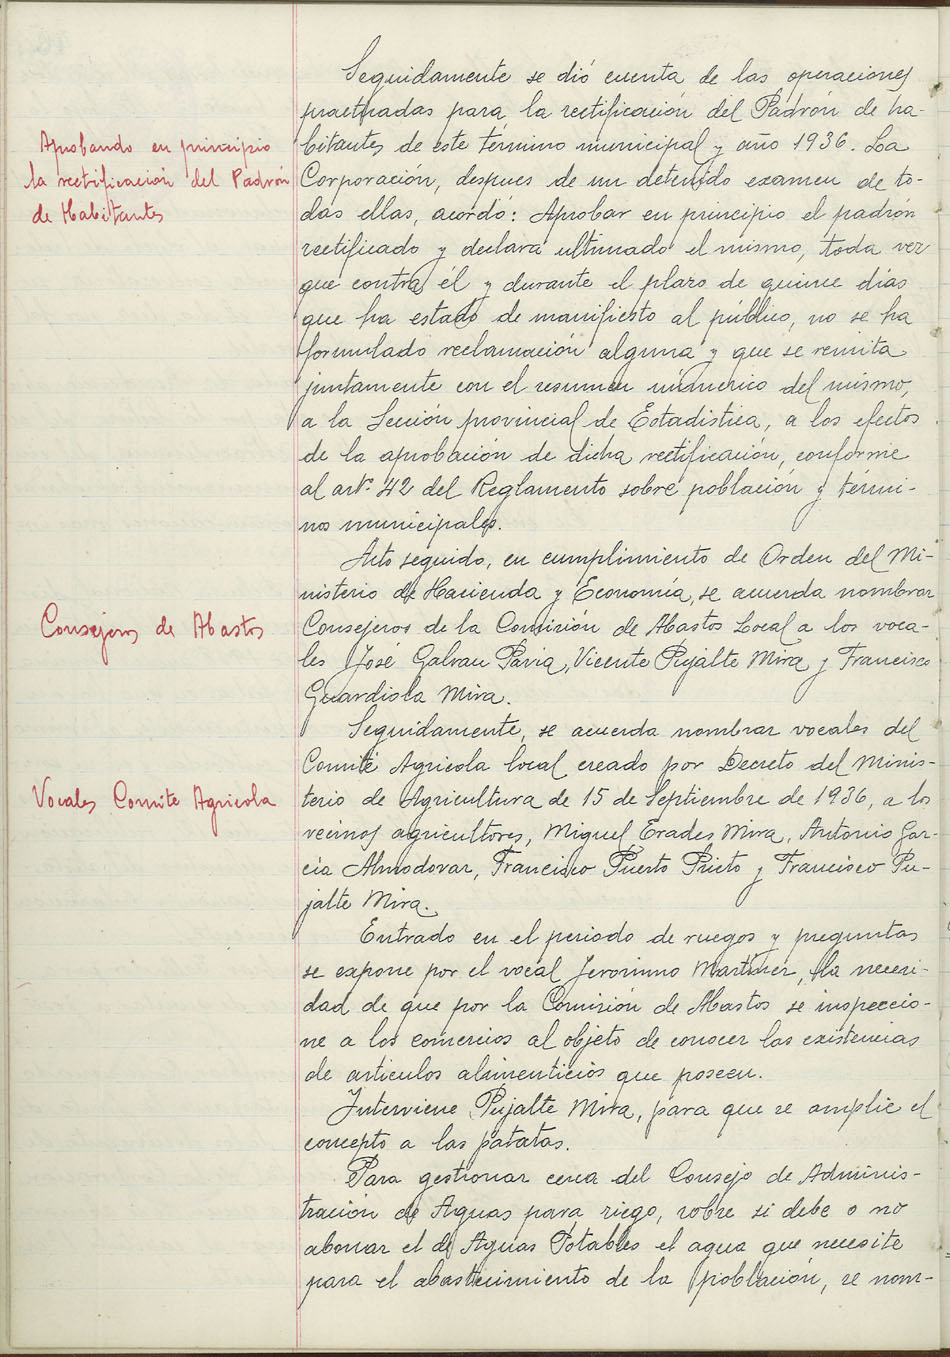 Seguidamente se dió cuenta de las operaciones
practicadas para la rectificación del Padrón de ha-
Aprobando en principio
la rectificación del Padrón
de Habitantes
bitantes de este término municipal y año 1936. La
Corporación, despues de un detenido examen de to-
das ellas, acordó: Aprobar en principio el padrón
rectificado y declara ultimado el mismo, toda vez
que contra él y durante el plazo de quince días
que ha estado de manifiesto al público, no se ha
formulado reclamación alguna y que se remita
juntamente con el resumen númerico del mismo,
a la Sección provincial de Estadistica, a los efectos
de la aprobación de dicha rectificación, conforme
al artº 42 del Reglamento sobre población y térmi-
nos municipales.
Acto seguido, en cumplimiento de Orden del Mi-
nisterio de Hacienda y Economía, se acuerda nombrar
Consejeros de Abastos
Consejeros de la Comisión de Abastos Local a los voca-
les José Galvau Pavia, Vicente Pujalte Mira y Francisco
Guardiola Mira.
Seguidamente, se acuerda nombrar vocales del
Vocales Comite Agricola
Comité Agricola local creado por Decreto del Minis-
terio de Agricultura de 15 de Septiembre de 1936, a los
vecinos agricultores, Miguel Erades Mira, Antonio Gar-
cia Almodovar, Francisco Puerto Prieto y Francisco Pu-
jalte Mira.
Entrado en el periodo de ruegos y preguntas
se expone por el vocal Jeronimo Martinez, la necesi-
dad de que por la Comisión de Abastos se inspeccio-
ne a los comercios al objeto de conocer las existencias
de articulos alimenticios que poseen.
Interviene Pujalte Mira, para que se amplie el
concepto a las patatas.
Para gestionar cerca del Consejo de Adminis-
tración de Aguas para riego, sobre si debe o no
abonar el de Aguas Potables el agua que necesite
para el abastecimiento de la población, se nom-